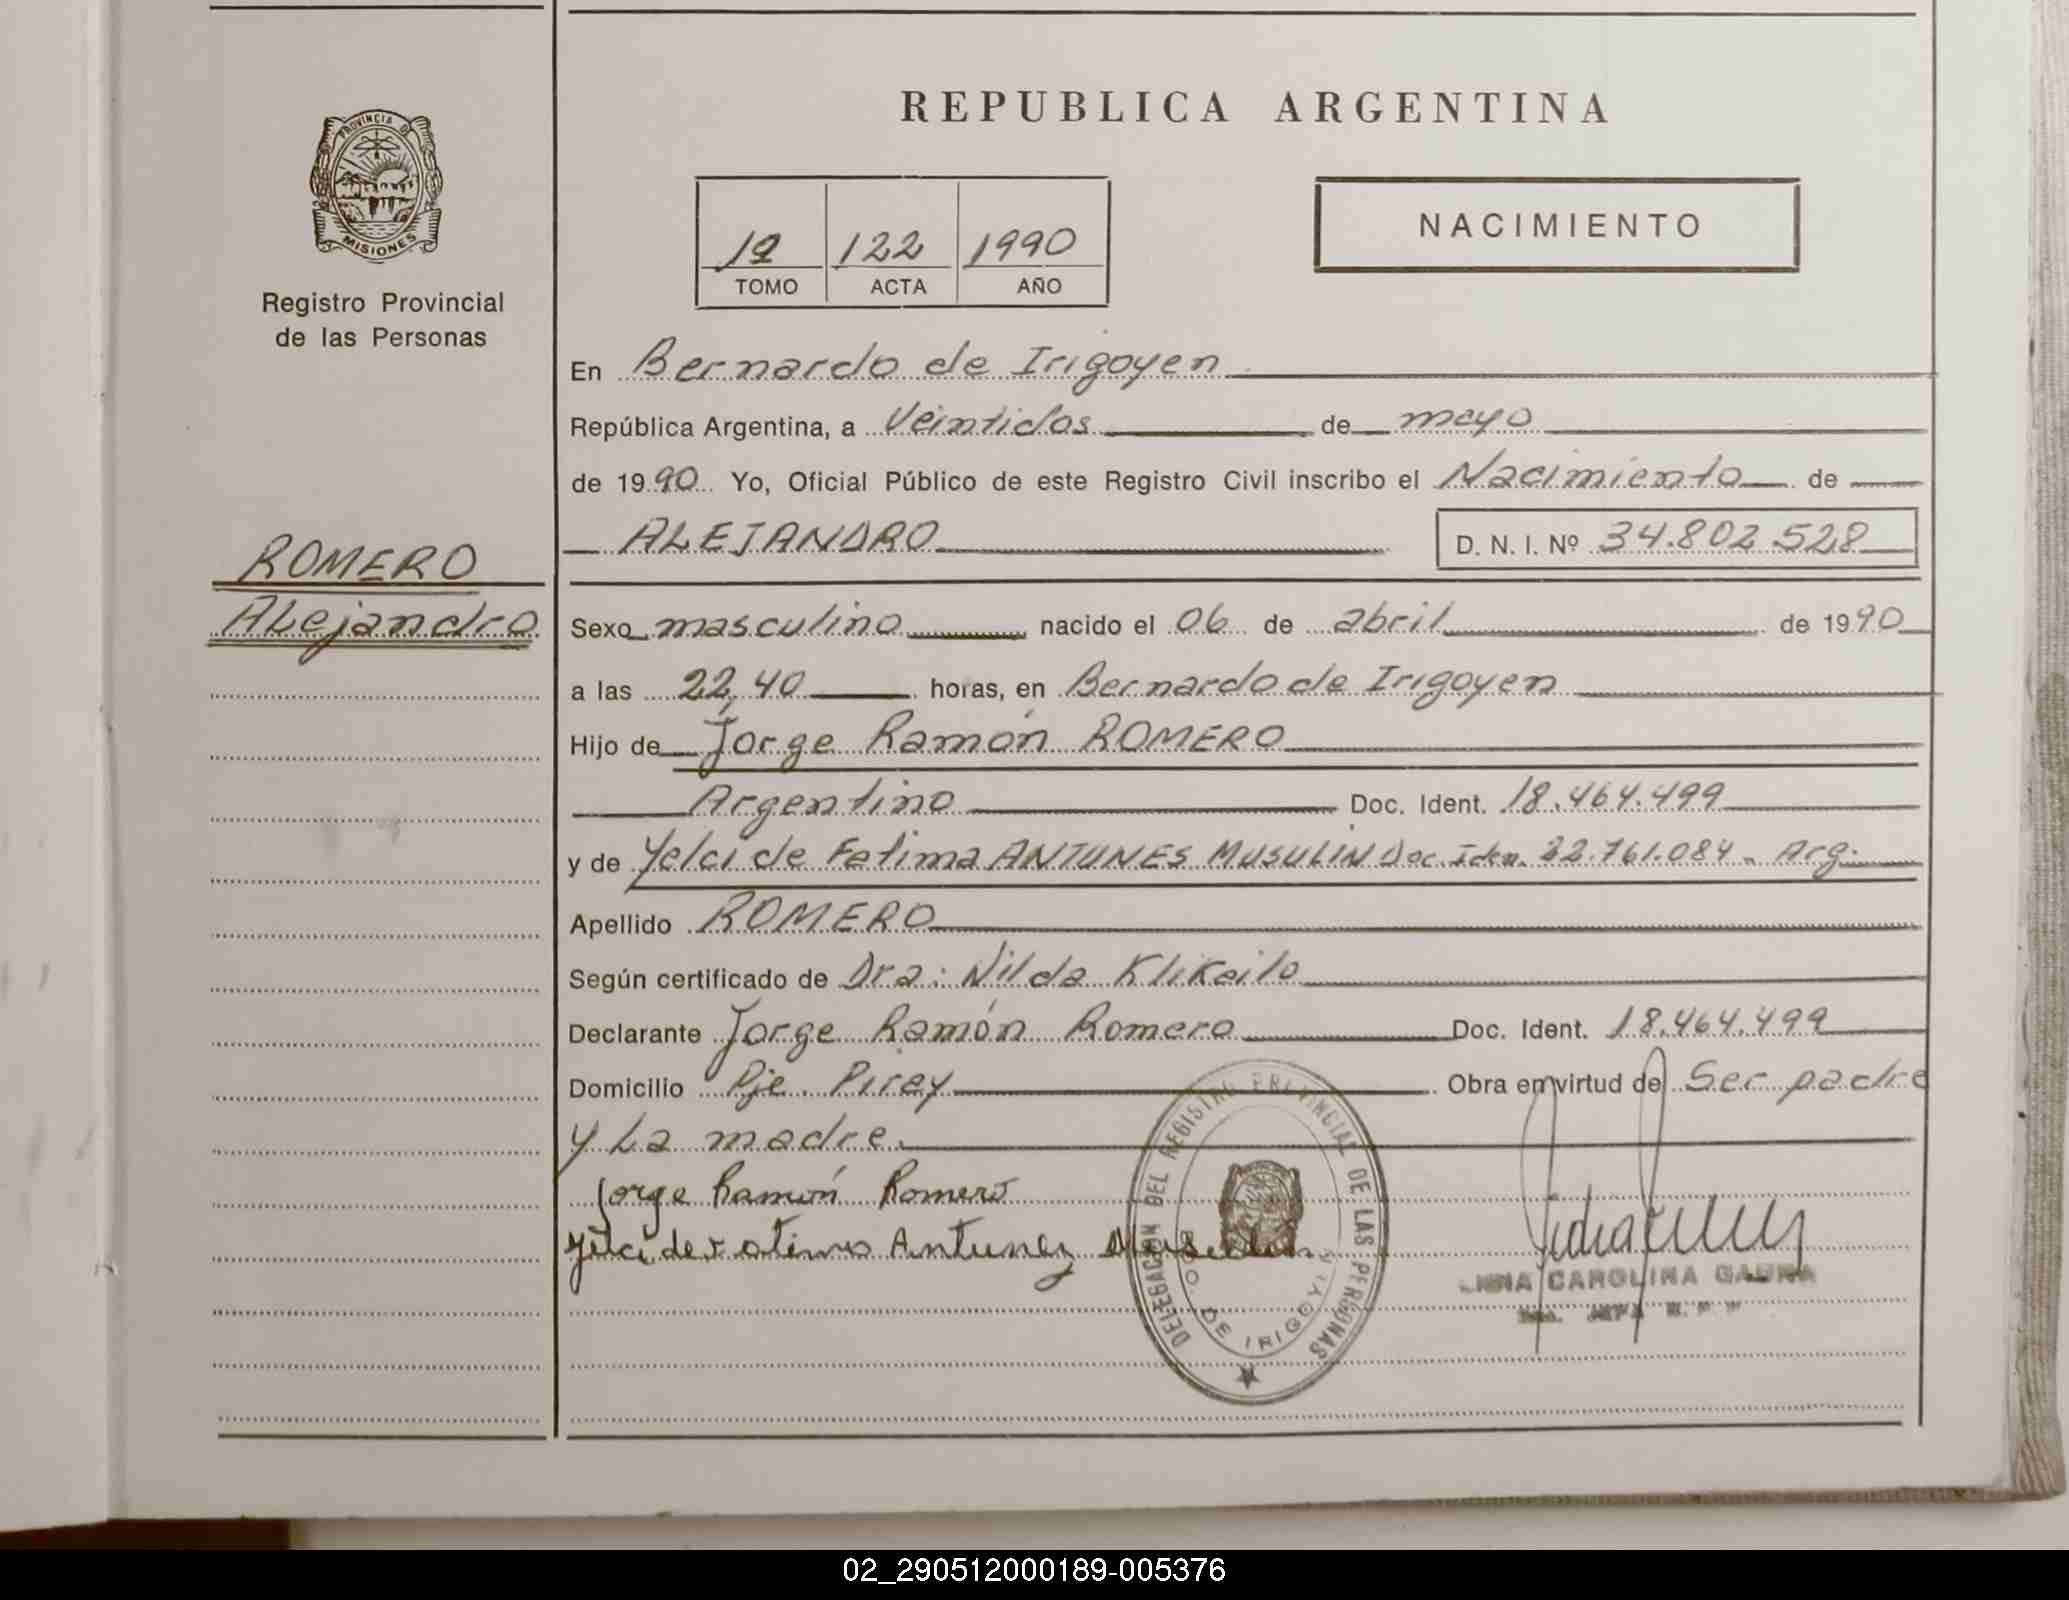 REPUBLICA ARGENTINA
PROVINCIA DE
MISIONES
Registro Provincial
de las Personas
12 122 1990
TOMO ACTA AÑO
NACIMIENTO
En Bernardo de Irigoyen
República Argentina, a Veintidos de mayo
de 1990 Yo, Oficial Público de este Registro Civil inscribo el Nacimiento de
ALEJANDRO D. N. I. Nº 34.802.528
ROMERO
ALejandro
Sexo masculino nacido el 06 de abril de 1990
a las 22,40 horas, en Bernardo de Irigoyen
Hijo de Jorge Ramón ROMERO
Argentino Doc. Ident. 18.464.499
y de Yelci de Fatima ANTUNES MUSULIN Doc. Iden. 22.761.084. Arg.
Apellido ROMERO
Según certificado de Dra: Nilda Klikailo
Declarante Jorge Ramón Romero Doc. Ident. 18.464.499
Domicilio Pje. Pirey Obra en virtud de Ser padre
y La madre.
Jorge Ramón Romero
Yelci de Fatima Antunez
DELEGACION DEL REGISTRO PROVINCIAL DE LAS PERSONAS
BDO. DE IRIGOYEN
CAROLINA
JEFA
02_290512000189-005376